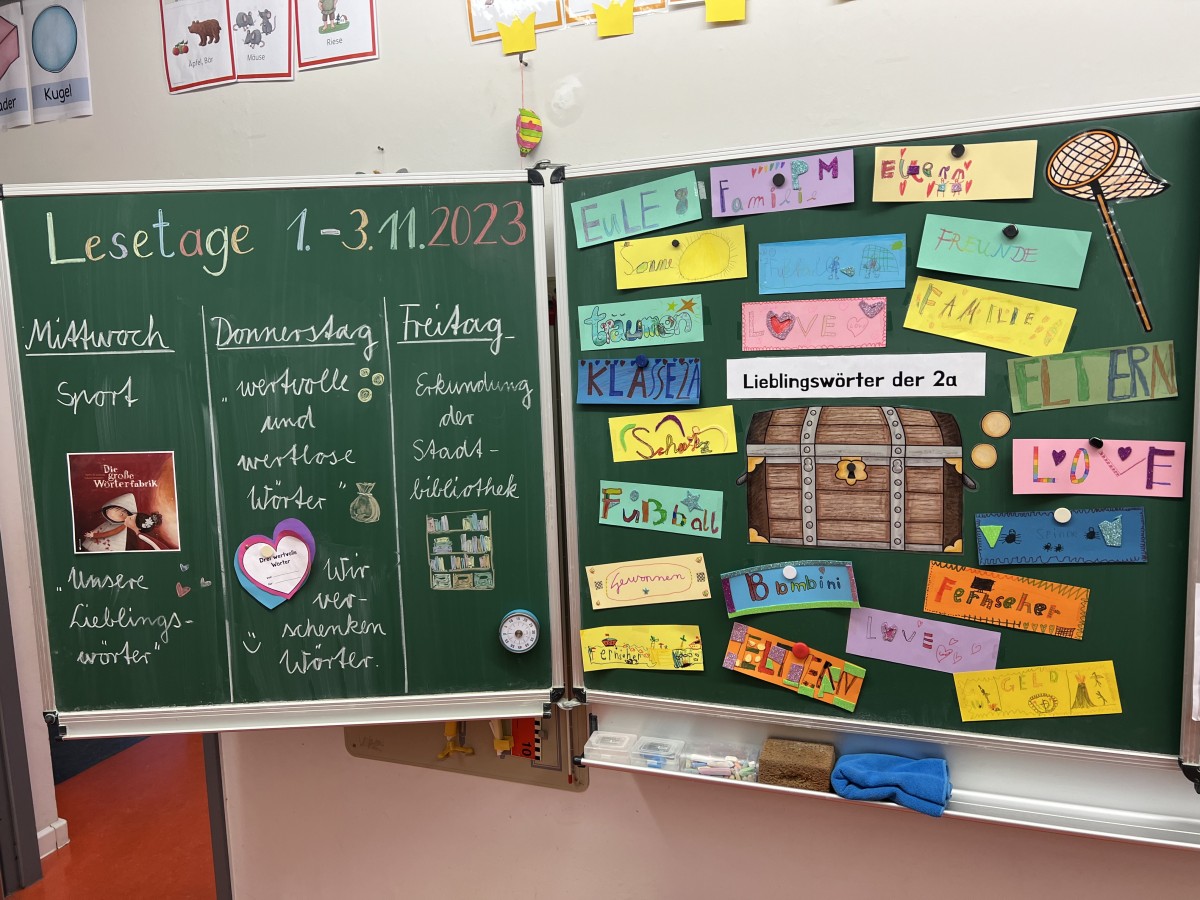 Kugel
Äpfel, Bär
Mäuse
Riese
Lesetage 1.-3.11.2023
Mittwoch
Sport
Die
große
Wörterfabrik
"Unsere
Lieblings-
wörter"
Donnerstag
"wertvolle
und
wertlose
Wörter"
Drei wertvolle
Wörter
Wir
ver-
schenken
Wörter.
Freitag
Erkundung
der
Stadt-
bibliothek
EULE
Familie
PM
Eltern
Sonne
Fußball
FREUNDE
träumen
LOVE
FAMILIE
KLASSE2A
Lieblingswörter der 2a
ELTERN
Schatz
LOVE
Fußball
Spinne
Gewonnen
Bombini
Fernseher
Fernseher
ELTERN
LOVE
GELD
10